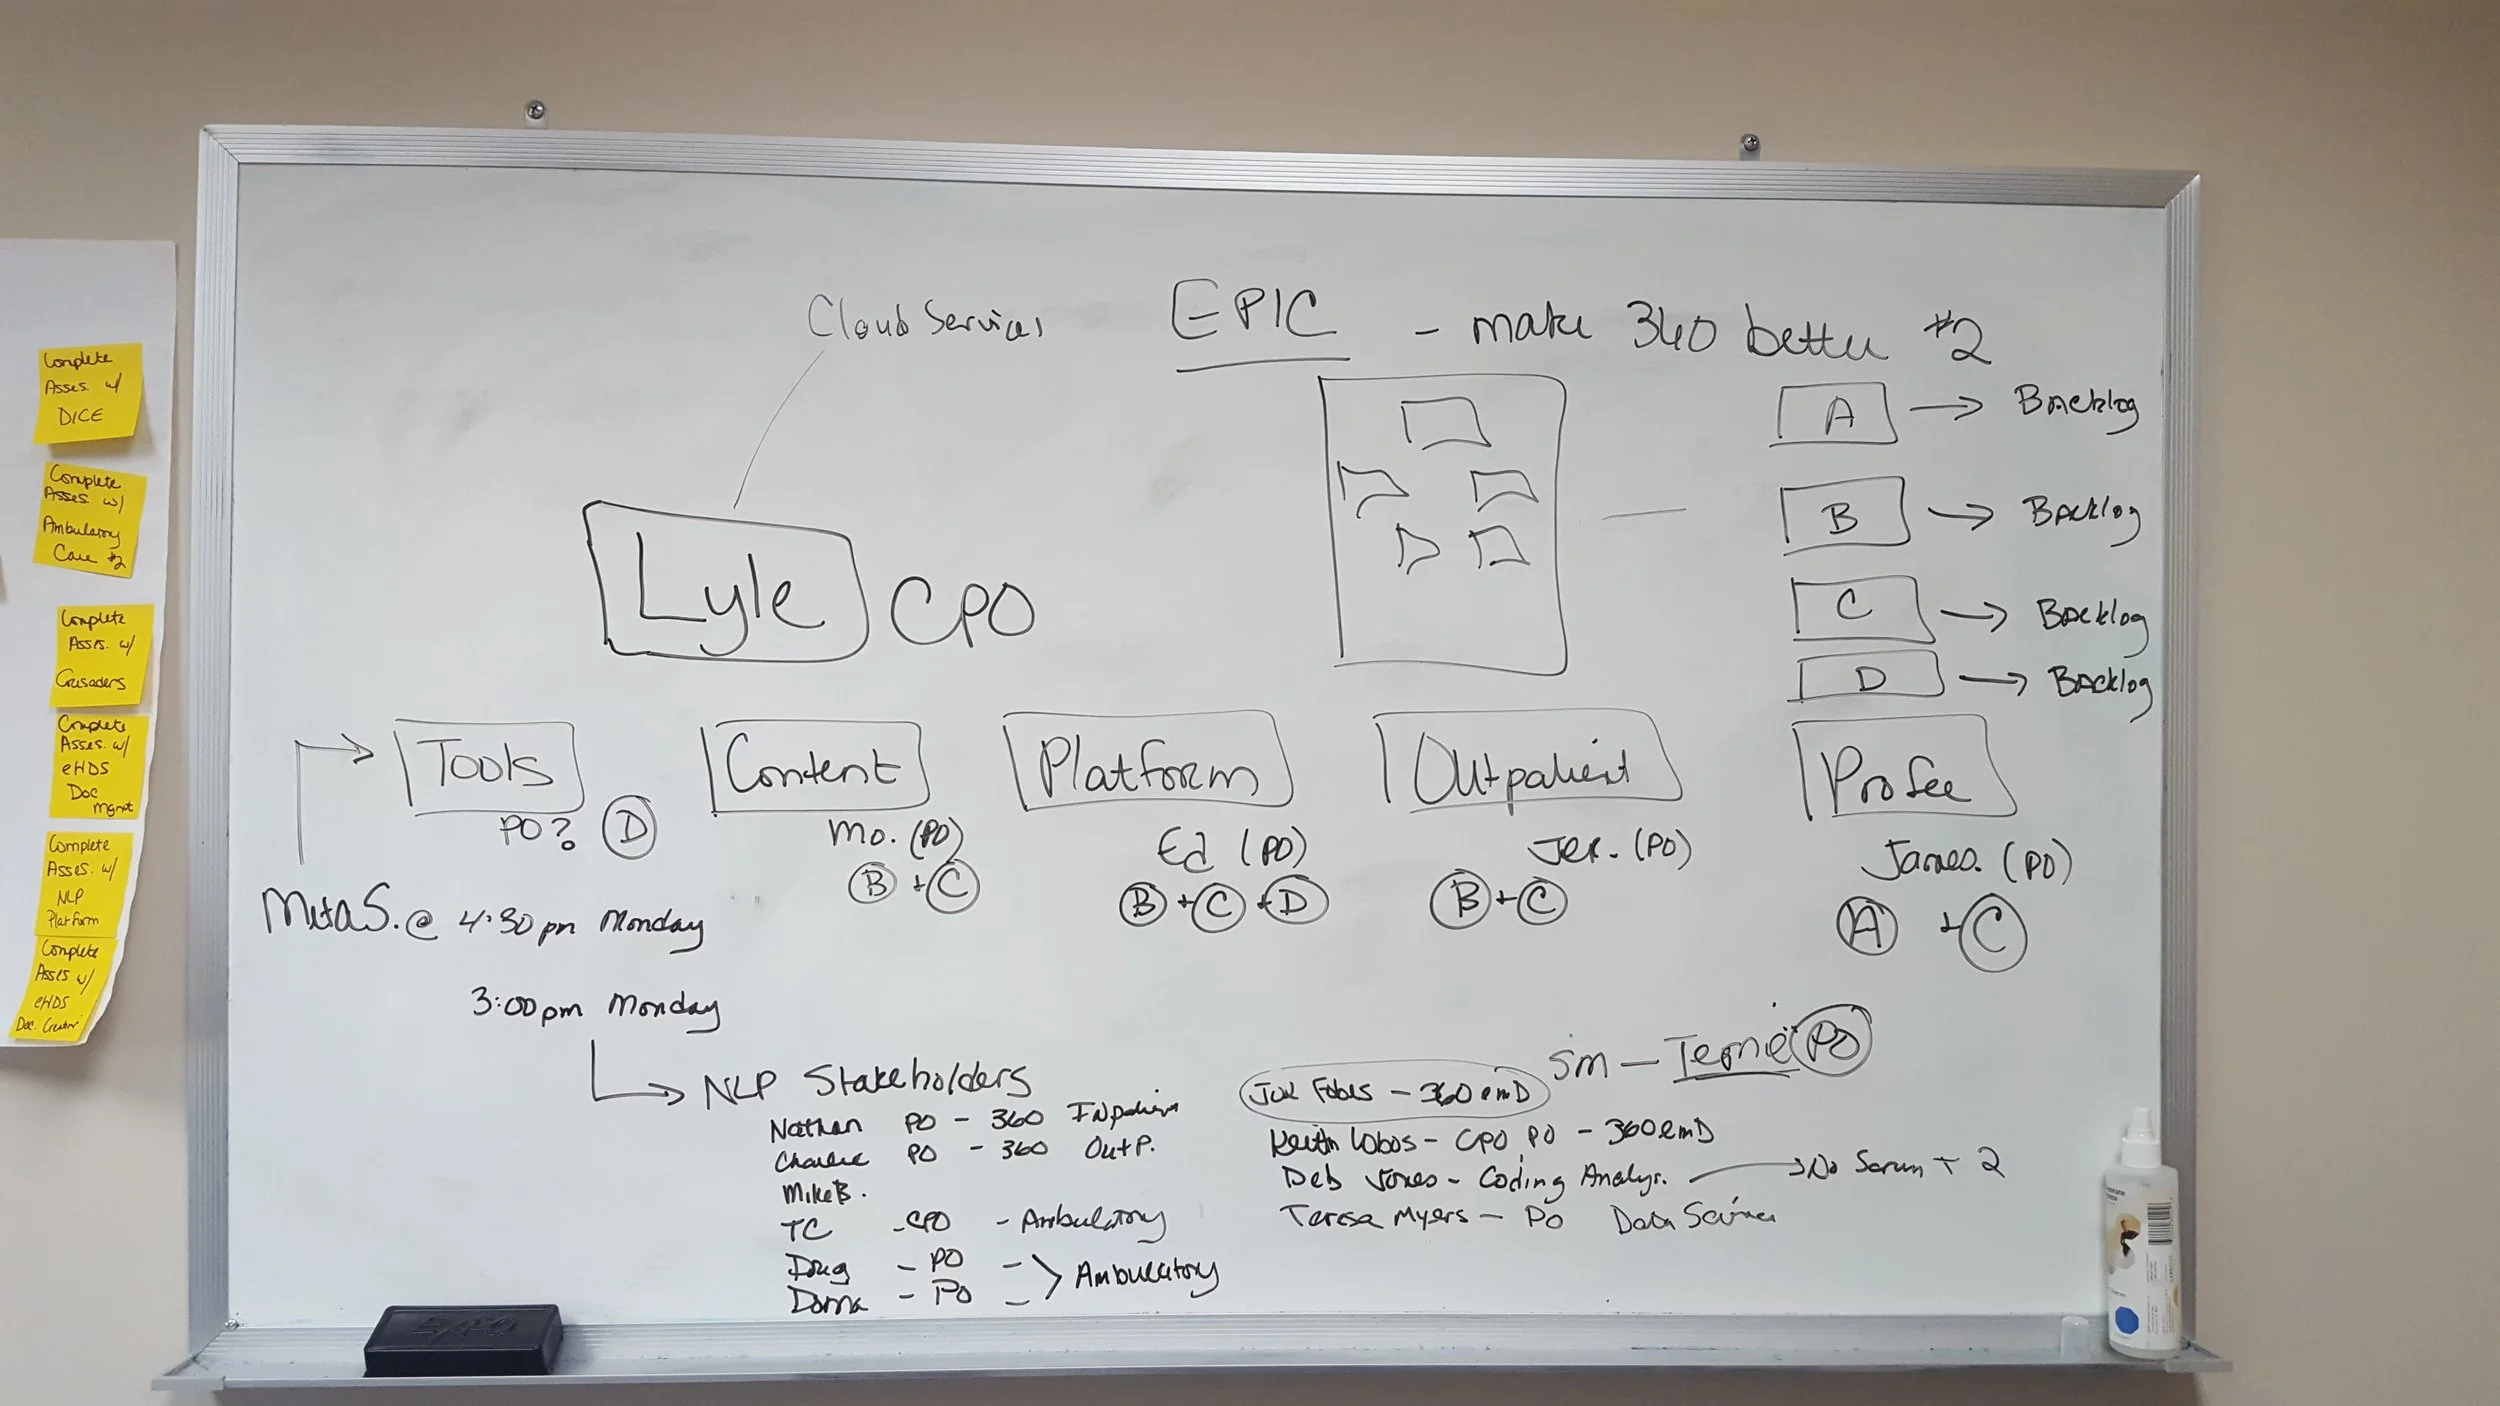 Complete
Asses. w/
DICE
Complete
Asses w/
Ambulatory
Care #2
Complete
Asses. w/
Crusaders
Complete
Asses. w/
eHDS
Doc
Mgmt
Complete
Asses. w/
NLP
Platform
Complete
Asses w/
eHDS
Doc.
Cloud Services
EPIC - make 360 better #2
A → Backlog
B → Backlog
C → Backlog
D → Backlog
Lyle CPO
Tools
PO? D
Content
Mo. (PO)
B + C
Platform
Ed (PO)
B + C + D
Outpatient
Jer. (PO)
B + C
Profee
James. (PO)
A + C
@ 4:30pm Monday
3:00pm Monday
NLP Stakeholders
Nathan PO - 360 INpatient
Charlie PO - 360 OutP.
MikeB.
TC - CPO - Ambulatory
Doug - PO -
Donna - PO -
Ambulatory
SM - PO
- 360 emD
Keith - CPO PO - 360emD
Deb Jones - Coding Analys. → No Scrum + 2
Teresa Myers - PO Data Science
EXPO